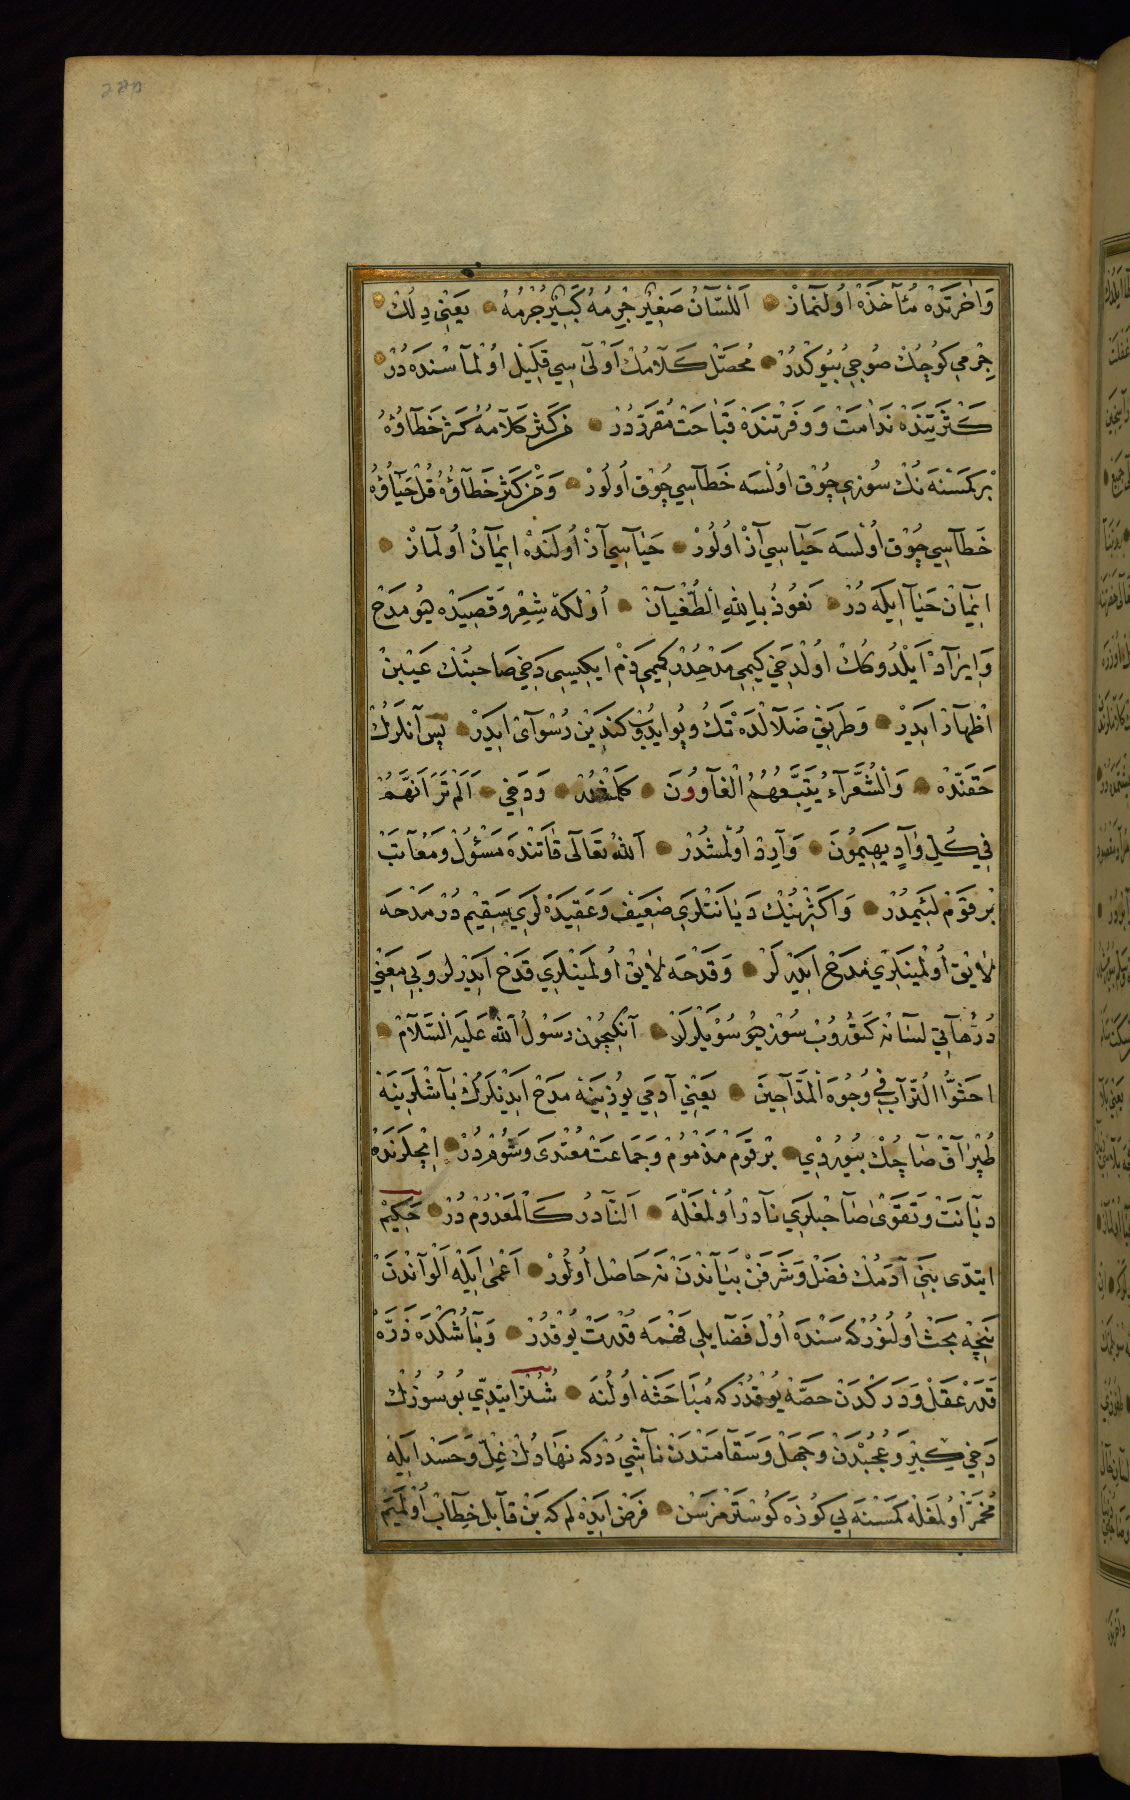 وَاٰخِرَتدَهْ مُئآخَذَهْ اُولنمَازْ اَللِّسَانُ صَغِيرٌ جِرْمُهُ كَبِيرٌ جُرْمُهُ يَعْنِي دِلُكْ
جِرْمِي كُوچُكْ صُوجِي بُيُوكْدُرْ مُحَصَّل كَلَامُكْ اَوْلىٰ سِي قَلِيل اُولْمَاسْنده دُرْ
كَثْرَتِنْدَهْ نَدَامَتْ وَ وَفْرَتنْدَهْ قَبَاحَتْ مُقَرَّرْ دُرْ مَنْ كَثُرَ كَلَامُهُ كَثُرَ خَطَآؤُهُ
بِرْ كِمَسْنَه نُكْ سُوزِي چُوْق اُولْسَه خَطَاسِي چُوْق اُولُورْ وَمَنْ كَثُرَ خَطَآؤُهُ قَلَّ حَيَآؤُهُ
خَطَاسِي چُوْق اُولْسَه حَيَاسِي آزْ اُولُورْ حَيَاسِي آزْ اُولَنْدَهْ اِيمَانْ اُولمَازْ
اِيمَانْ حَيَا اِيلَه دُرْ نَعُوذُ بِاللهِ الطُّغْيَانْ اُولكه شِعِرْ وَقَصِيدَه هِجْو مَدْح
وَاِيرَادْ اَيْلَدُوكُكْ اُولْدَخِي كِيمِي مَدْحِدُرْ كِيمِي ذَمْ ايكِيسِي دَخِي صَاحِبُنُكْ عَيْبِنْ
اِظْهَارْ اِيدَرْ وَطَرِيقِ ضَلَالْدَه تَكْ وپُو ايدُوبْ كَنْدِيْن رُسْوَاىْ ايدَرْ پس آنلَرُكْ
حَقنَدَه وَالشُّعَرَآءُ يَتَّبِعُهُمُ الْغَاوُونَ وَدَخِي اَلَمْ تَرَ اَنَّهُمْ
فِي كُلِّ وَادٍ يَهِيمُونَ وَارِدْ اُولْمشدُرْ اَللهُ تَعَالىٰ قَاتنْدَه مَسْئُولْ وَمُعَاتَبْ
بِرْ قَوْمِ لَئِيمدُرْ وَاَكْثَرِيْنُكْ دِيَانَتلَرِي ضَعِيفْ وَعَقِيدَهْ لَرِي سَقِيمْ دُرْ مَدْحَه
لَايِقْ اُولْمَينلَرِي مَدْح ايدَرْلَرْ وَقَدْحَه لَايِقْ اُولمَينلَرِي قَدْح ايدَرْلر وَبي مَعْنِي
دُرُّهَاتِي لِسَانه كَتُورُوبْ سُوزِ هِجْو سُوْيلَرْلَرْ آنكِيچُونْ رَسُولُ اللهْ عَلَيْهِ السَّلَامْ
اُحْثُوا التُّرَابَ فِي وُجُوهِ الْمَدَّاحِينَ يَعْنِي آدَمِي يُوزينَه مَدْح ايدَنْلَرُكْ بَاشْلَرِينَه
طُپْرَاقْ صَاچُكْ بُيُوردِي بِرْ قَوْمِ مَذْمُومْ وَجَمَاعَتْ مُعْتَدَى وَشُومْ دُرْ اِيچلَرَنْدَهْ
دِيَانَتْ وَتَقْوَىٰ صَاحِبلَرِي نَادِرْ اُولمَغْلَهْ اَلنَّادِرُ كَالْمَعْدُومْ دُرْ حَكِيمْ
ايتدّى بَنِي آدَمُكْ فَضْل وَشَرَفْنْ بَيَانْدَنْ نَه حَاصِل اُولُورْ اَعْمىٰ اِيلَه اَلْوَانْدَنْ
نِيچَه بَحْثْ اُولنُورْكه سَنْدَه اُول فَضَايلِي فَهْمَه قُدْرَتْ يُوْقدُرْ وَبَاشُكْدَه ذَرَّه
قَدَرْ عَقْل وَدَرَكْدَنْ حِصَّه يُوْقدُرْكه مُبَاحَثَهْ اُولُنَه شُتُرْ ايتدِّي بُو سُوزُكْ
دَخِي كِبِرْ وَعُجُبْدَنْ وَجَهْل وَسَقَامَتْدَنْ نَاشِي دُرْكه نِهَادُكْ غِلّ وَحَسَدْ اِيلَه
مُخَمَّرْ اُولمَغلَه كِمَسْنَه يي كوزَه كُوسْتَرْمَزسَنْ فَرَضْ ايدَه لم كه بَنْ قَابِل خِطَابْ اُولْمَيَمْ